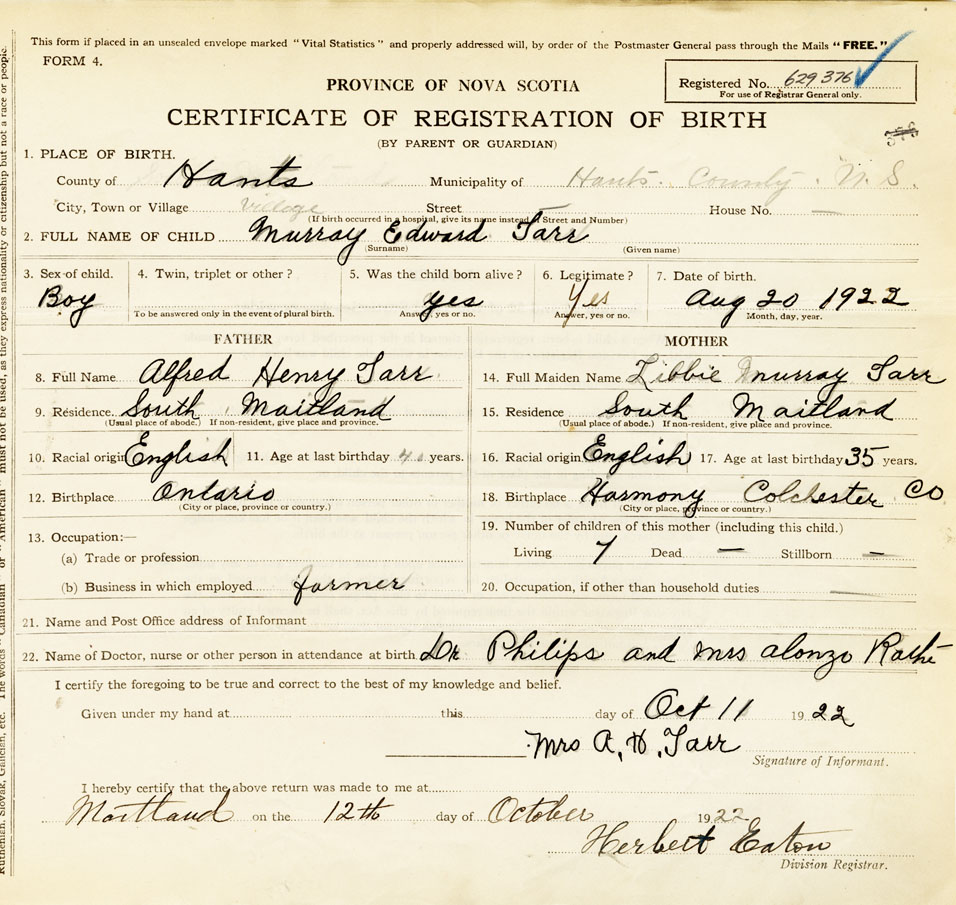 This form if placed in an unsealed envelope marked "Vital Statistics" and properly addressed will, by order of the Postmaster General pass through the Mails "FREE."
FORM 4.
Registered No. 629 376
For use of Registrar General only.
PROVINCE OF NOVA SCOTIA
CERTIFICATE OF REGISTRATION OF BIRTH
(BY PARENT OR GUARDIAN)
1. PLACE OF BIRTH.
County of Hants Municipality of Hants County. N. S.
City, Town or Village Village Street House No. —
(If birth occurred in a hospital, give its name instead of Street and Number)
2. FULL NAME OF CHILD Murray Edward Tarr
(Surname) (Given name)
3. Sex of child. 4. Twin, triplet or other? 5. Was the child born alive? 6. Legitimate? 7. Date of birth.
Boy yes Yes Aug 20 1922
To be answered only in the event of plural birth. Answer, yes or no. Answer, yes or no. Month, day, year.
FATHER MOTHER
8. Full Name Alfred Henry Tarr 14. Full Maiden Name Libbie Murray Tarr
9. Residence South Maitland 15. Residence South Maitland
(Usual place of abode.) If non-resident, give place and province. (Usual place of abode.) If non-resident, give place and province.
10. Racial origin English 11. Age at last birthday years. 16. Racial origin English 17. Age at last birthday 35 years.
12. Birthplace Ontario 18. Birthplace Harmony Colchester Co
(City or place, province or country.) (City or place, province or country.)
13. Occupation:— 19. Number of children of this mother (including this child.)
(a) Trade or profession Living 7 Dead — Stillborn —
(b) Business in which employed farmer 20. Occupation, if other than household duties
21. Name and Post Office address of Informant
22. Name of Doctor, nurse or other person in attendance at birth. Dr Philips and Mrs Alonzo
I certify the foregoing to be true and correct to the best of my knowledge and belief.
Given under my hand at this day of Oct 11 1922
Mrs A. H. Tarr
Signature of Informant.
I hereby certify that the above return was made to me at
Maitland on the 12th day of October 1922
Herbert Eaton
Division Registrar.
Ruthenian, Slovak, Galician, etc. The words "Canadian" or "American" must not be used, as they express nationality or citizenship but not a race or people.